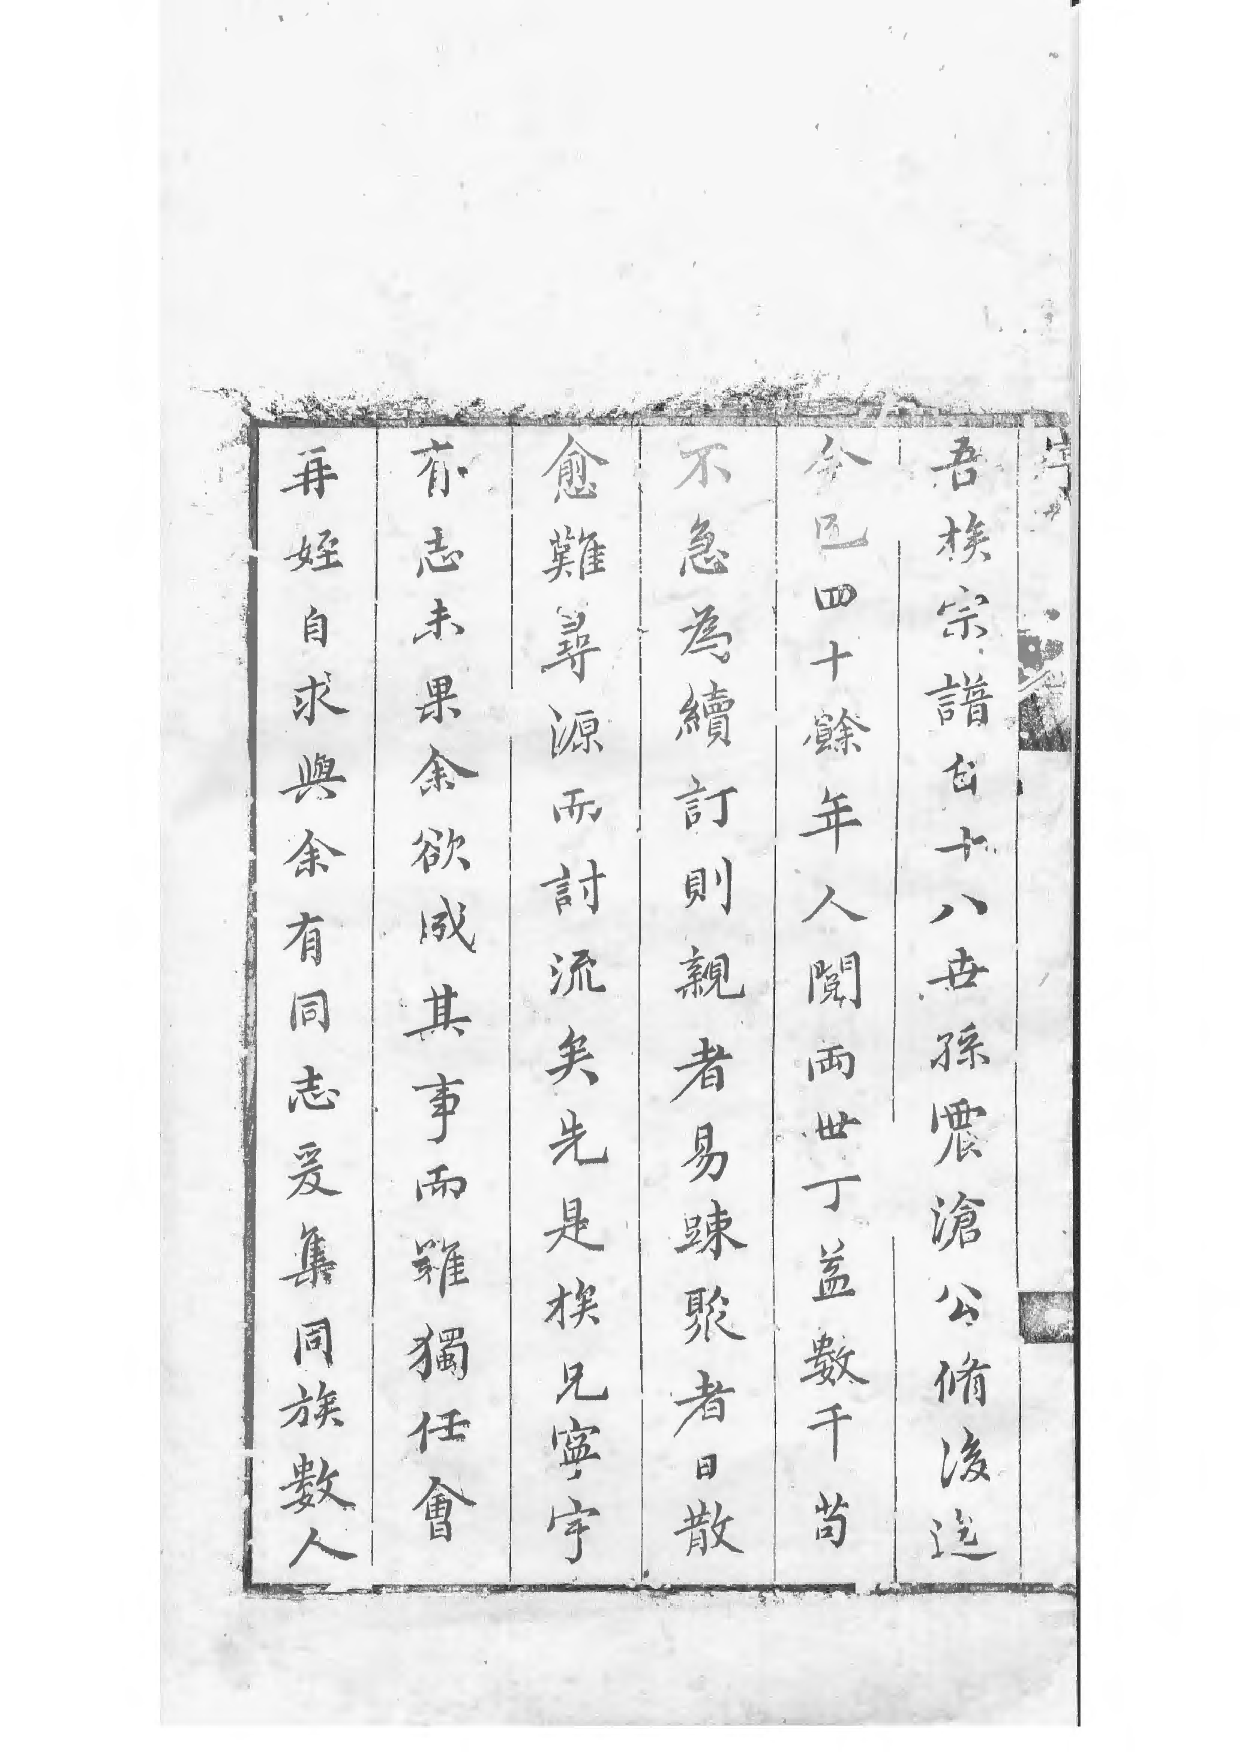 序
吾族宗譜自十八世孫震滄公脩後迄
今已四十餘年人閱兩世丁益數千苟
不急為續訂則親者易踈聚者日散
愈難尋源而討流矣先是族兄寧宇
有志未果余欲成其事而難獨任會
再姪自求與余有同志爰集同族數人